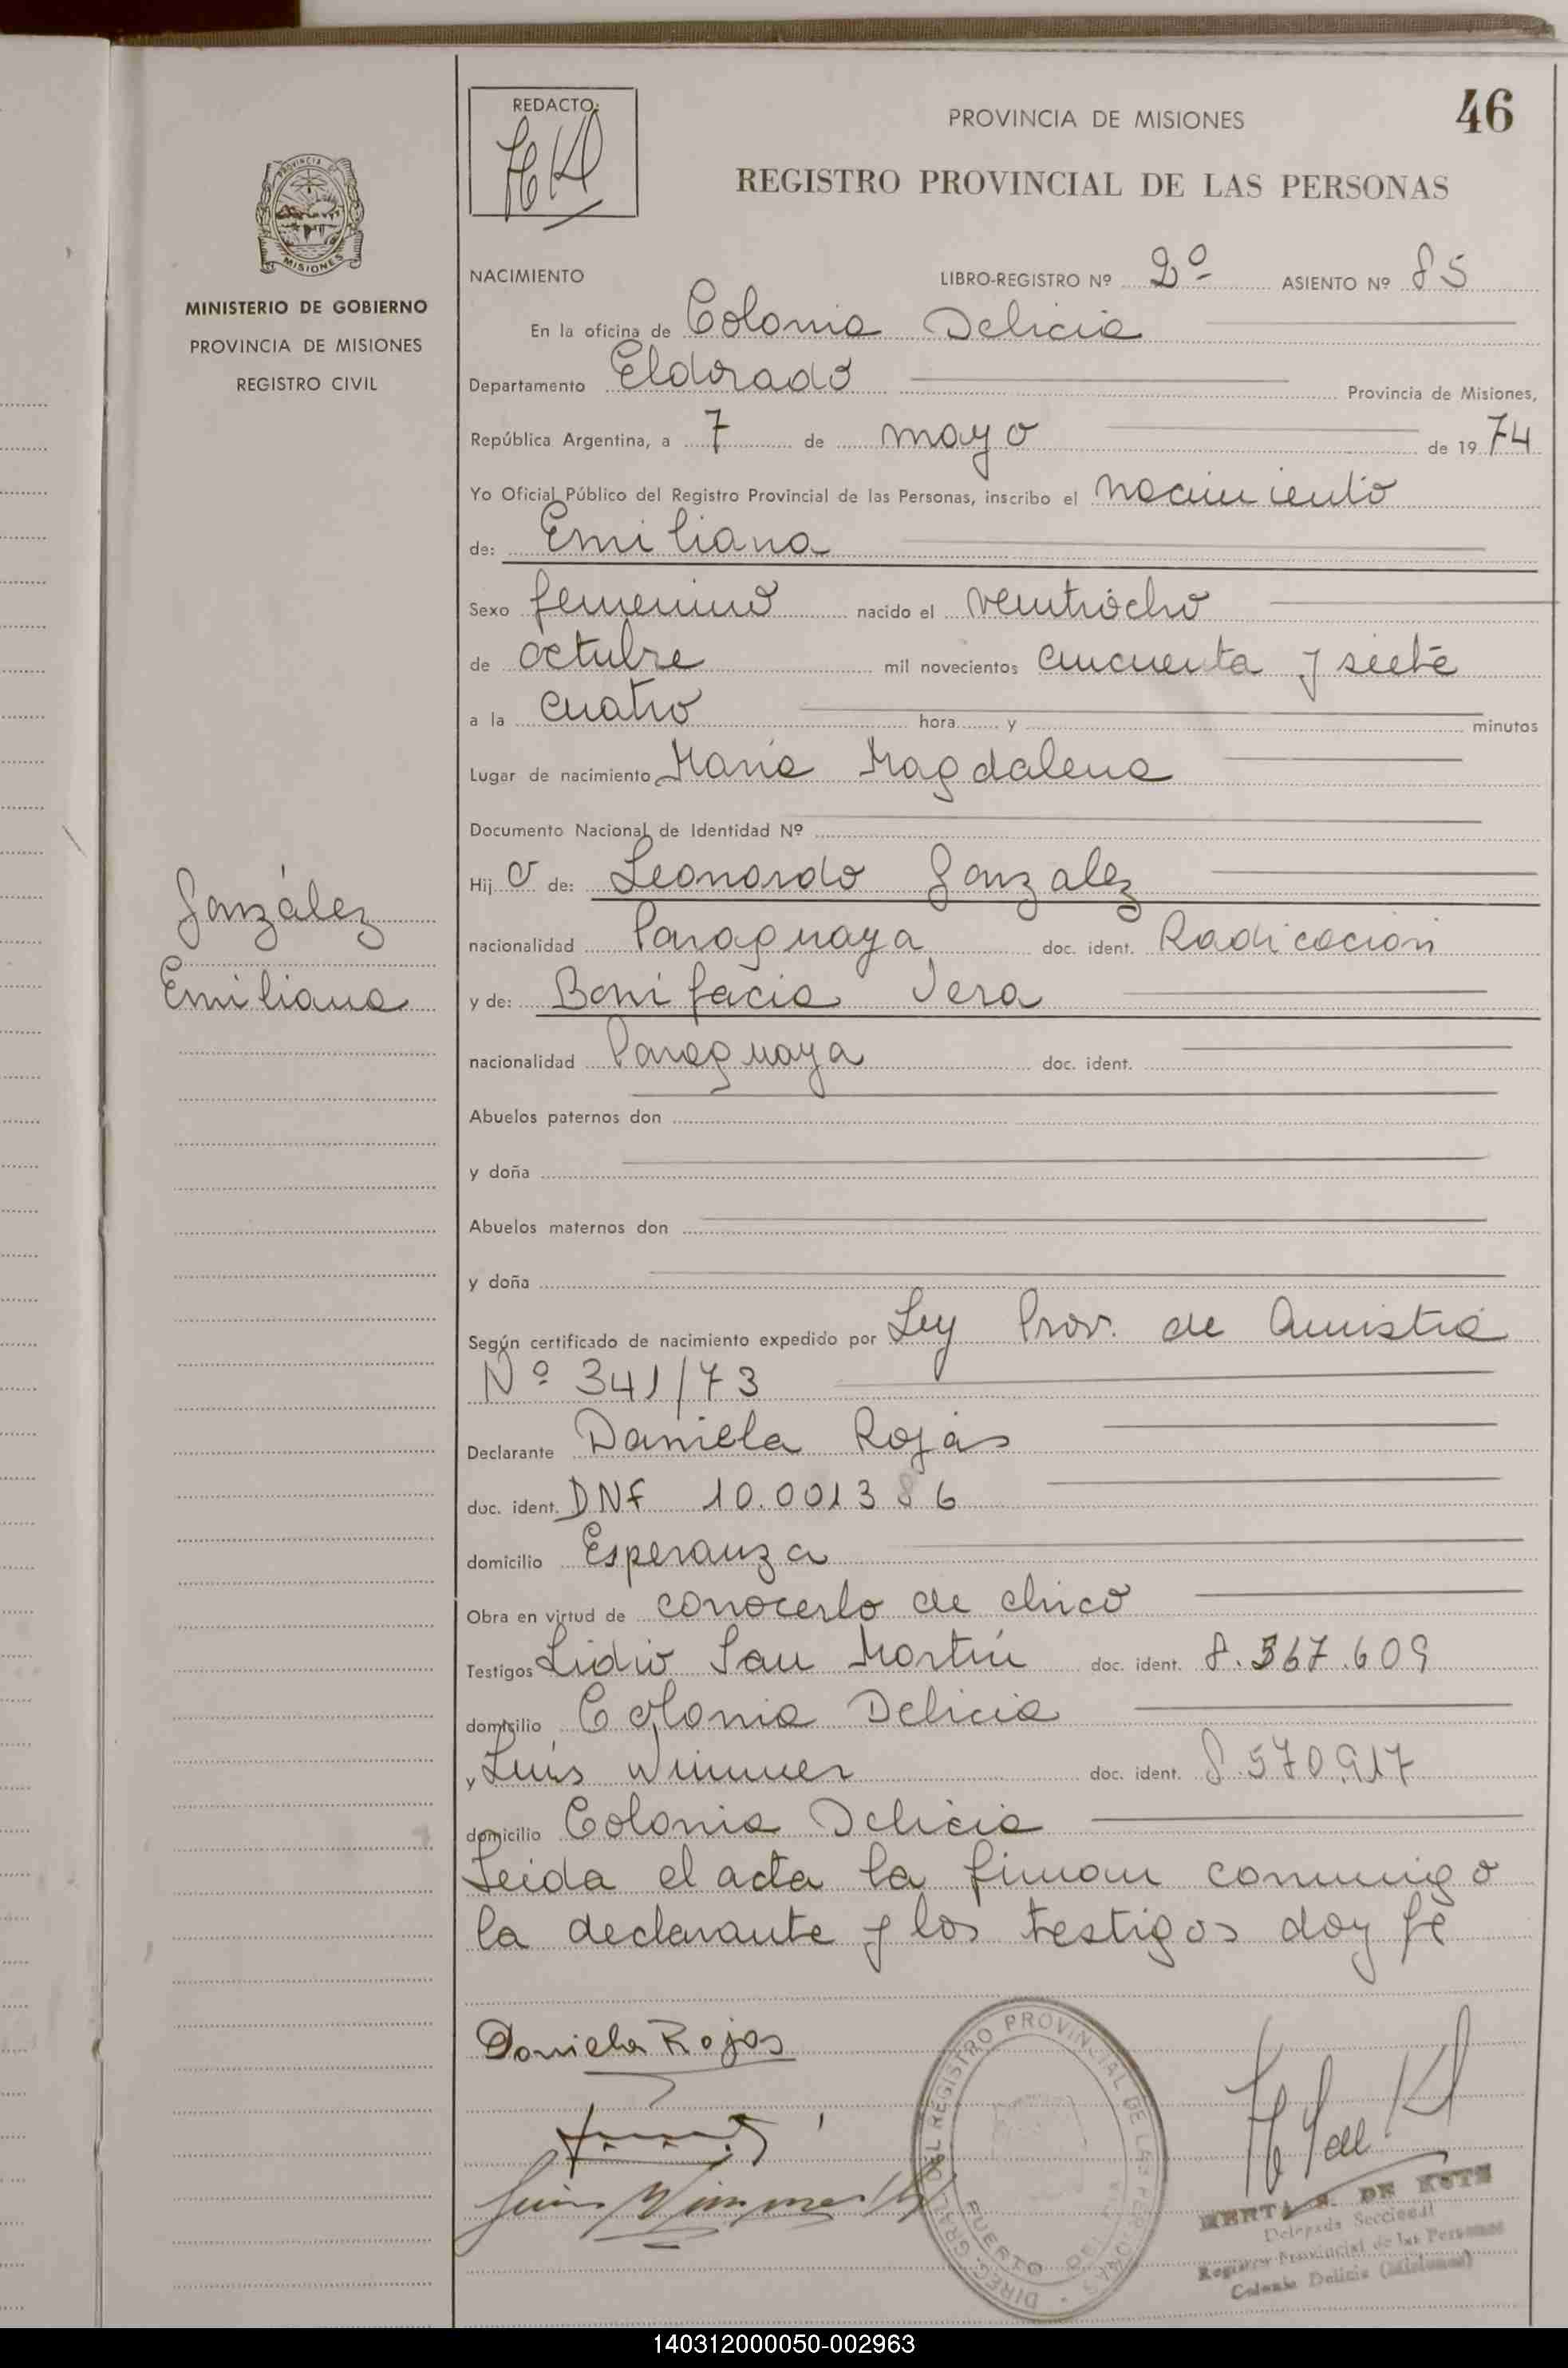 46
REDACTO:
PROVINCIA DE MISIONES
REGISTRO PROVINCIAL DE LAS PERSONAS
PROVINCIA
MISIONES
MINISTERIO DE GOBIERNO
PROVINCIA DE MISIONES
REGISTRO CIVIL
González
Emiliana
NACIMIENTO LIBRO-REGISTRO Nº 2º ASIENTO Nº 85
En la oficina de Colonia Delicia
Departamento Eldorado Provincia de Misiones,
República Argentina, a 7 de mayo de 1974
Yo Oficial Público del Registro Provincial de las Personas, inscribo el nacimiento
de: Emiliana
Sexo femenino nacido el veintiocho
de octubre mil novecientos cincuenta y siete
a la cuatro hora y minutos
Lugar de nacimiento Maria Magdalena
Documento Nacional de Identidad Nº
Hij o de: Leonardo Gonzalez
nacionalidad Paraguaya doc. ident. Radicacion
y de: Bonifacia Vera
nacionalidad Paraguaya doc. ident.
Abuelos paternos don
y doña
Abuelos maternos don
y doña
Según certificado de nacimiento expedido por Ley Prov. de Amistia
Nº 341/73
Declarante Daniela Rojas
doc. ident. DNF 10.001386
domicilio Esperanza
Obra en virtud de conocerlo de chico
Testigos Lidio San Martín doc. ident. 8.367.609
domicilio Colonia Delicia
y Luis Wimmer doc. ident. 8.570.917
domicilio Colonia Delicia
Leida el acta la firman conmigo
la declarante y los testigos doy fé
Daniela Rojas
Luis Wimmer
DIREC. GRAL. DEL REGISTRO PROVINCIAL DE LAS PERSONAS
PUERTO
HERTA S. DE KOTZ
Delegada Seccional
Registro Provincial de las Personas
Colonia Delicia (Misiones)
140312000050-002963